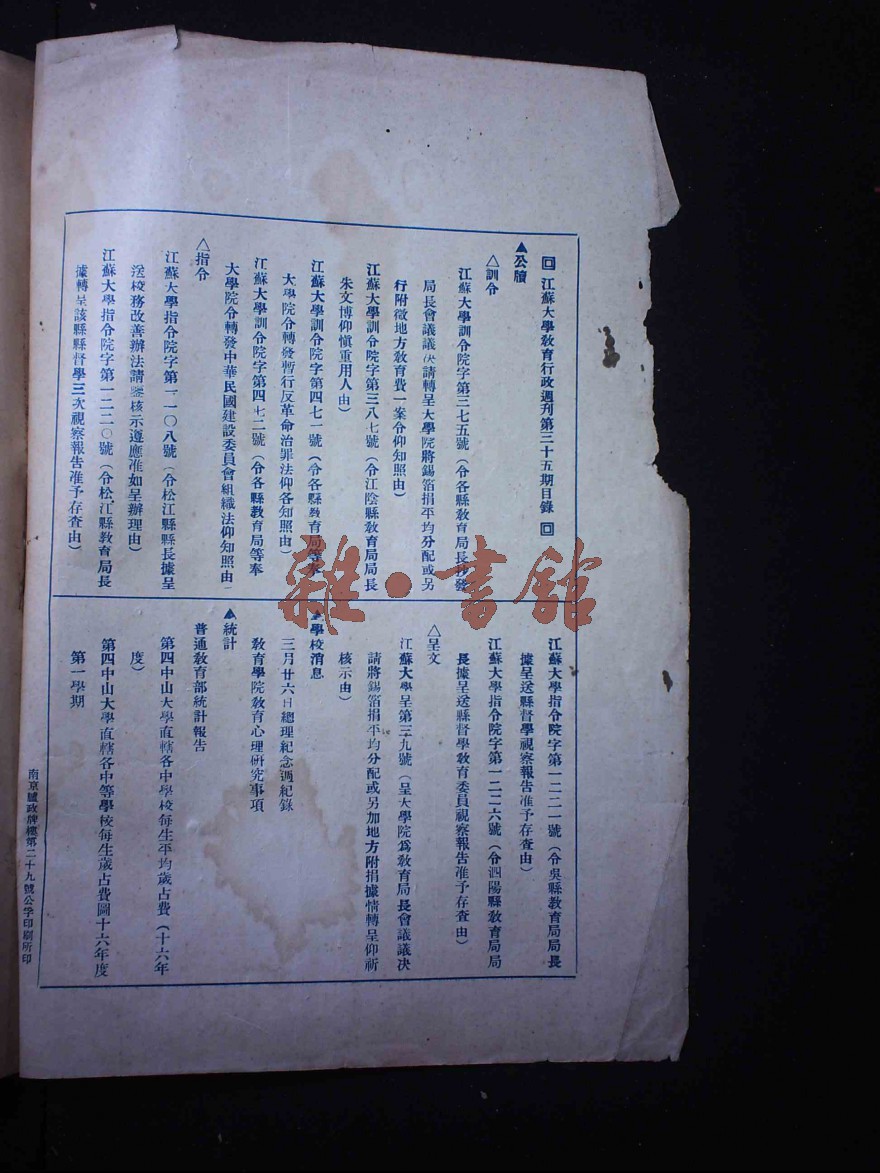 回 江蘇大學教育行政週刊第三十五期目錄 回
▲公牘
△訓令
江蘇大學訓令院字第三七五號（令各縣教育局長抄發
局長會議議決請轉呈大學院將錫箔捐平均分配或另
行附徵地方教育費一案令仰知照由）
江蘇大學訓令院字第三八七號（令江陰縣教育局局長
朱文博仰愼重用人由）
江蘇大學訓令院字第四七一號（令各縣教育局等奉
大學院令轉發暫行反革命治罪法仰各知照由）
江蘇大學訓令院字第四七二號（令各縣教育局等奉
大學院令轉發中華民國建設委員會組織法仰知照由）
△指令
江蘇大學指令院字第一一〇八號（令松江縣縣長據呈
送校務改善辦法請鑒核示遵應准如呈辦理由）
江蘇大學指令院字第一二二〇號（令松江縣教育局長
據轉呈該縣縣督學三次視察報告准予存查由）
江蘇大學指令院字第一二二一號（令吳縣教育局局長
據呈送縣督學視察報告准予存查由）
江蘇大學指令院字第一二二六號（令泗陽縣教育局局
長據呈送縣督學教育委員視察報告准予存查由）
△呈文
江蘇大學呈第三九號（呈大學院爲教育局長會議議决
請將錫箔捐平均分配或另加地方附捐據情轉呈仰祈
核示由）
▲學校消息
三月廿六日總理紀念週紀錄
教育學院教育心理研究事項
▲統計
普通教育部統計報告
第四中山大學直轄各中學校每生平均歲占費（十六年
度）
第四中山大學直轄各中等學校每生歲占費圖十六年度
第一學期
南京盧政牌樓第二十九號公孚印刷所印
雜·書館